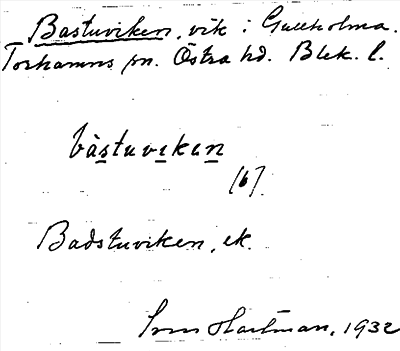 Bastuviken, vik i Gullholma.
Torhamns sn. Östra hd. Blek. l.
bàstuvikən
(6)
Badstuviken, ek.
Sven Hartman, 1932